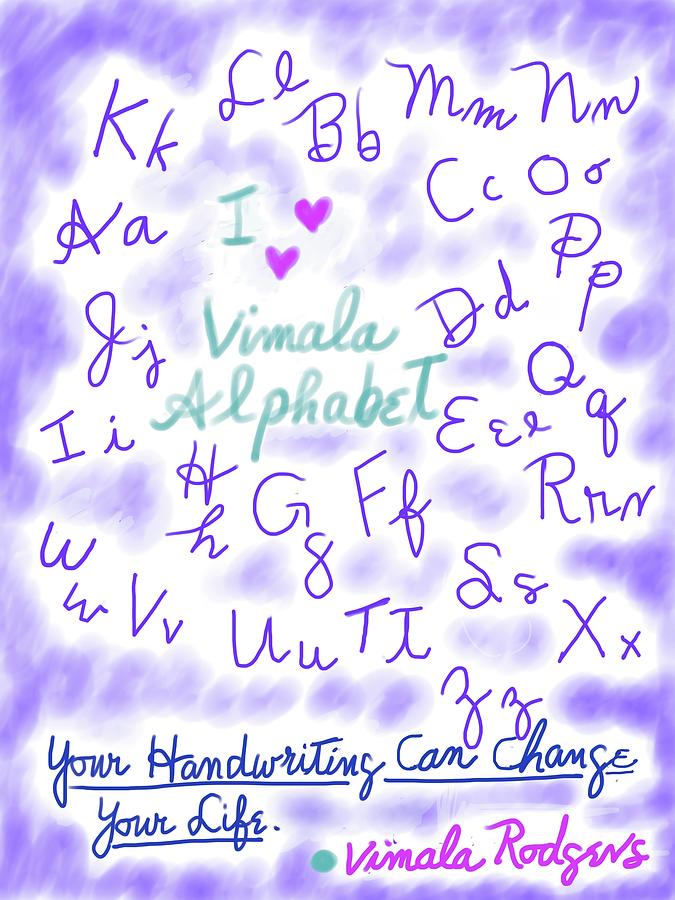 Ll
Kk
Bb
Mm
Nn
Aa
I
Cc
Oo
Pp
Jj
Vimala
Dd
Alphabet
Qq
Ii
Eee
Hh
Gg
Ff
Rrr
Ww
Vv
Uu
Tt
Ss
Xx
Zz
Your Handwriting Can Change
Your Life.
Vimala Rodgers